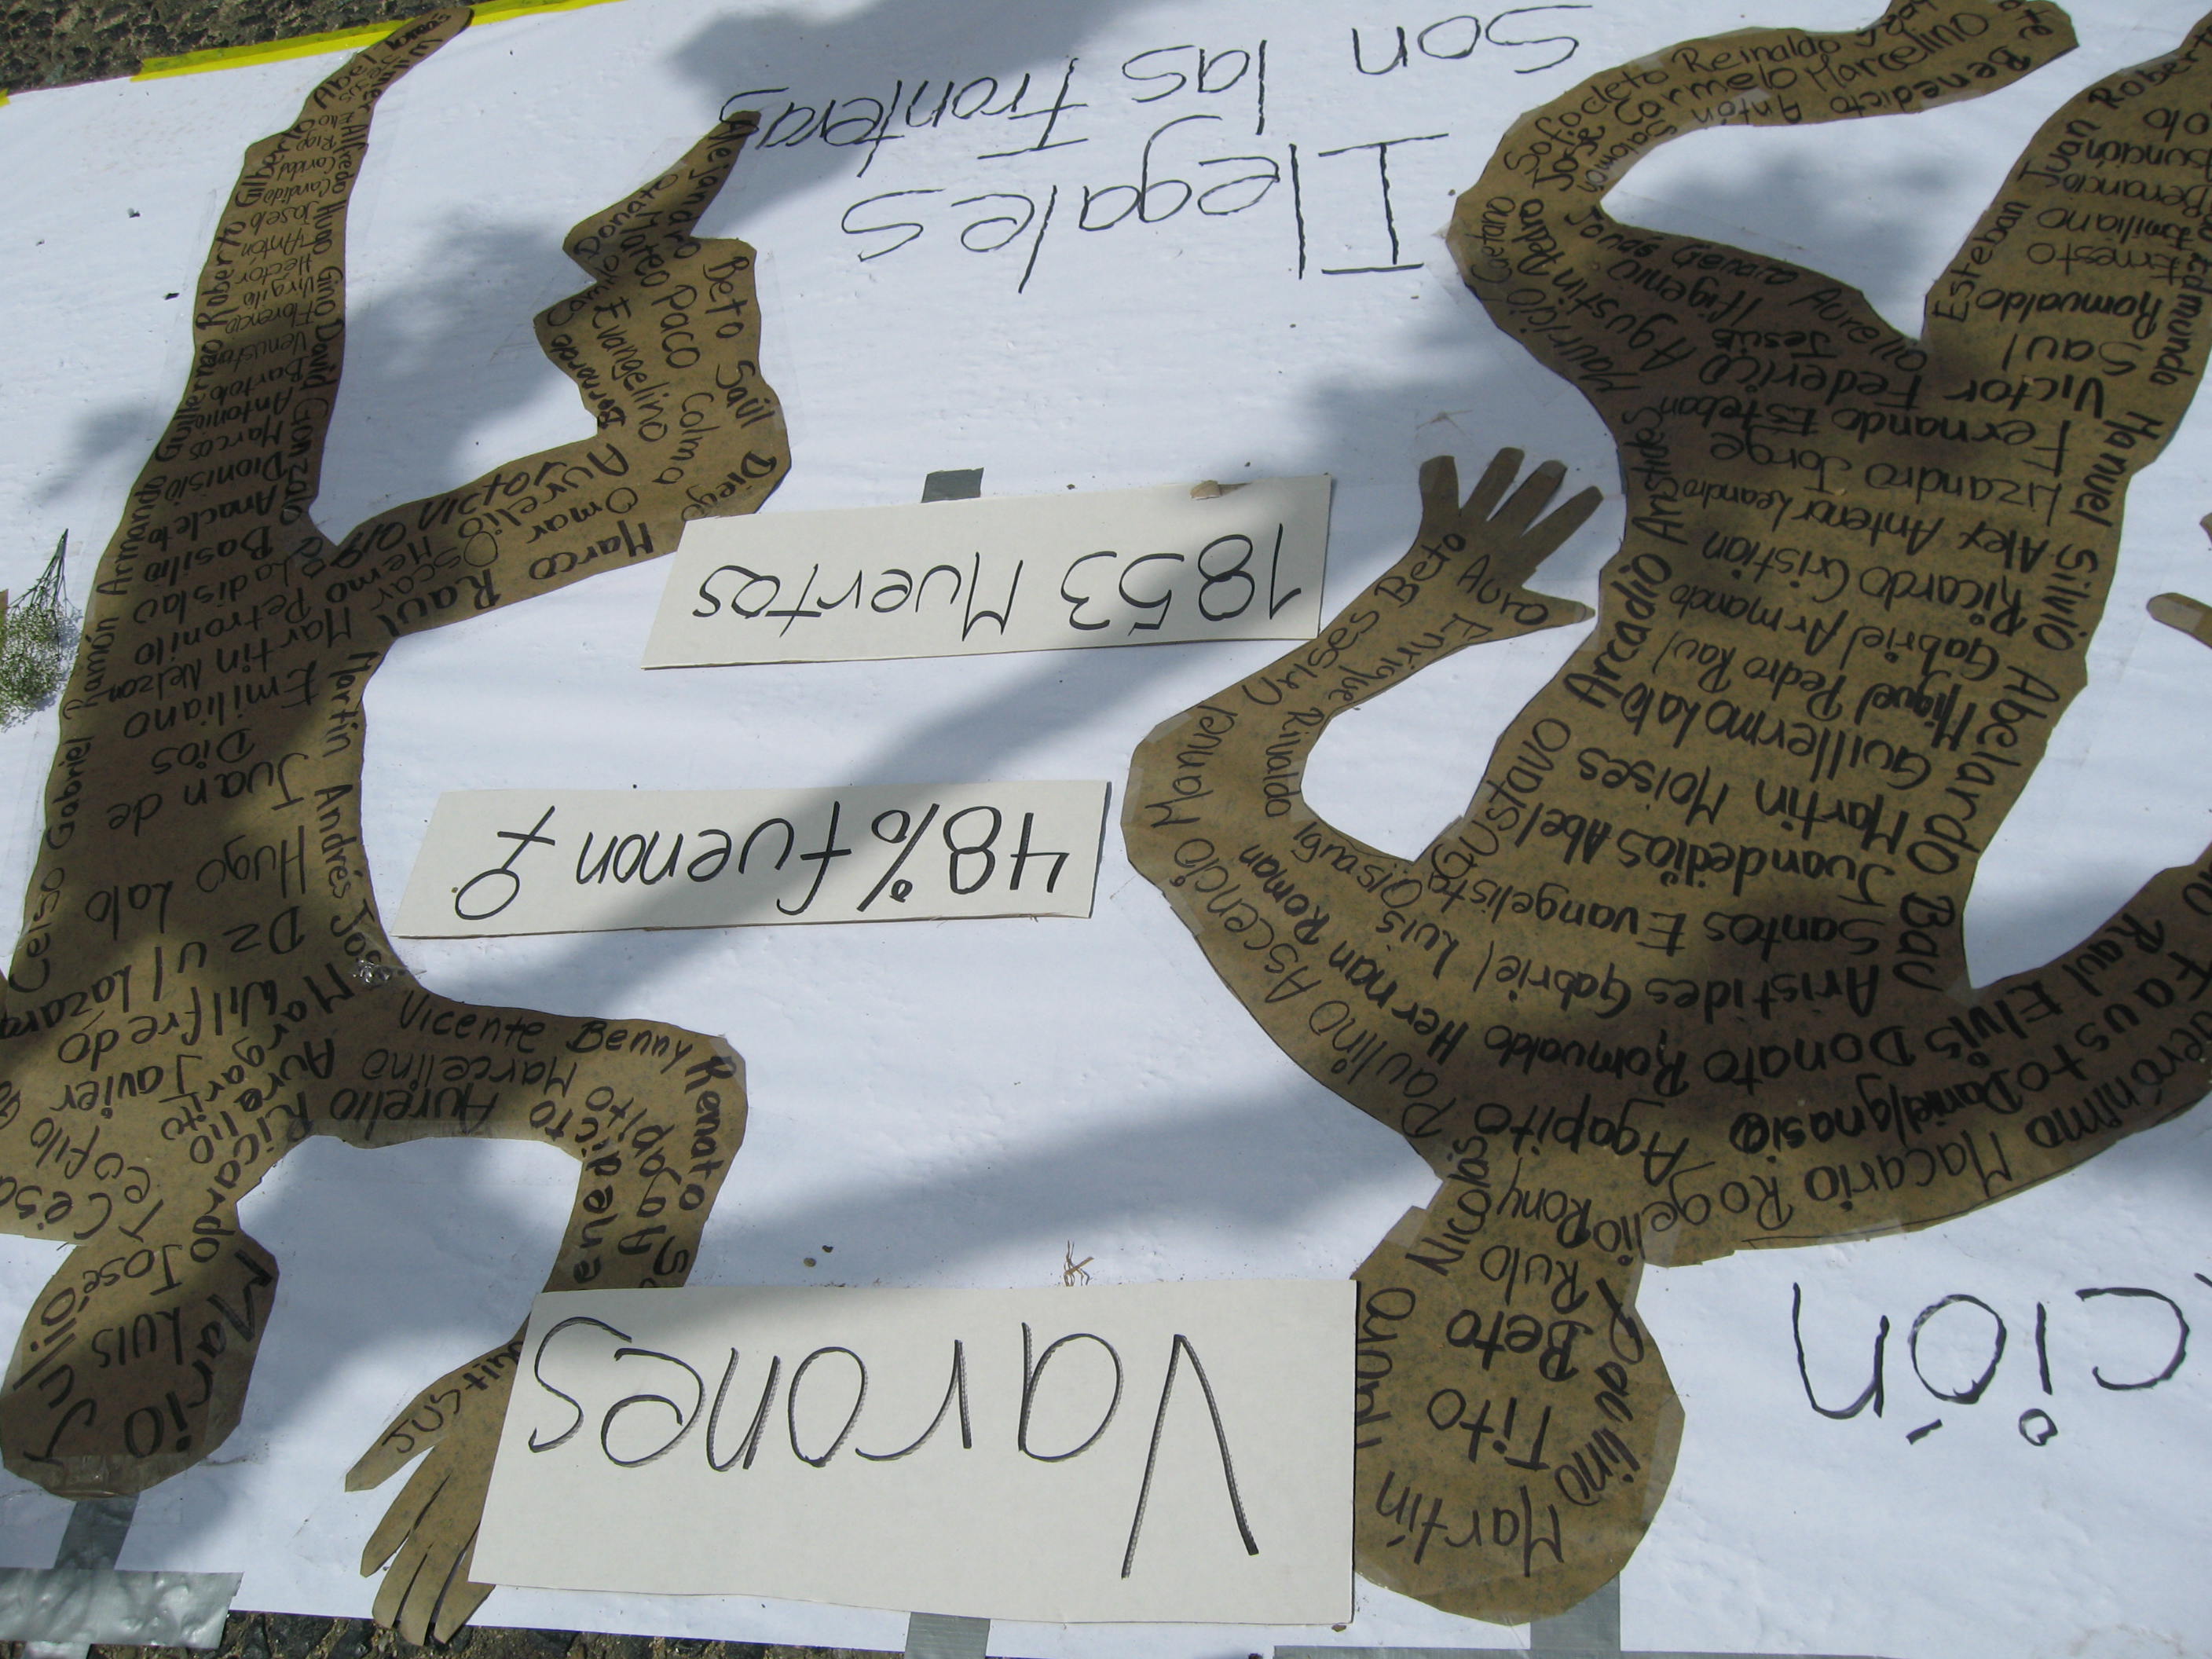 Varones
48% fueron ♀
1853 Muertos
Ilegales
Son las fronteras
ción
Martín
Tito
Beto
Rulo
Rony
Nicolás
Paulino
Rogelio
Macario
Agapito
Daniel Ignasio
Fausto
Paulino Ascencio Manuel
Ulises Beto
Ana
Enrique Rinaldo
Herman Roman
Romualdo
Donato
Elvis
Raul
Aristides Gabriel Luis
Santos Evangelista
Juandedios Abel
Martin Moises
Guillermo Lalo
Miguel Pedro Raul
Gabriel Armando
Ricardo Cristian
Alex Antenor Leandro
Lizandro Jorge
Fernando Esteban
Victor Federico Agustin Pedro
Saul
Jesús Ifigenio
Romualdo
Ernesto
Emiliano
Esteban Juan Robert
Gustavo Arcadio Aristides
Mauricio Caetano Sofocleto Reinaldo
Jose Carmelo Marcelino
Salomón Antón Benedicto
Edmundo Manuel Silvio Abelardo
Mario
Julio
Luis
José
Ricardo
Aurelio
Margarito
Javier
Wilfredo
Dzul Lazaro
Hugo Lalo
Juan de
Dios
Emiliano
Martin Nelzon
Petronilo
Ladislav
Basilio
Anacleto
Dionisio
Marcos
Antonio
Bartolo
Florencio
Virgilio
Héctor
Antón
Joselo
Candido
Celso Gabriel Ramón Armando Guillermo Roberto Gilberto Abel
Alfredo Hugo Gino David Gonzalo
Raul Marco
Oscar Omar
Aurelio
Diego
Saúl
Beto
Mateo Paco
Evangelino
Bernardo
Donato
Alejandro
Martín Andrés José
Vicente Benny Renato
Marcelino
Aurelio
Justino